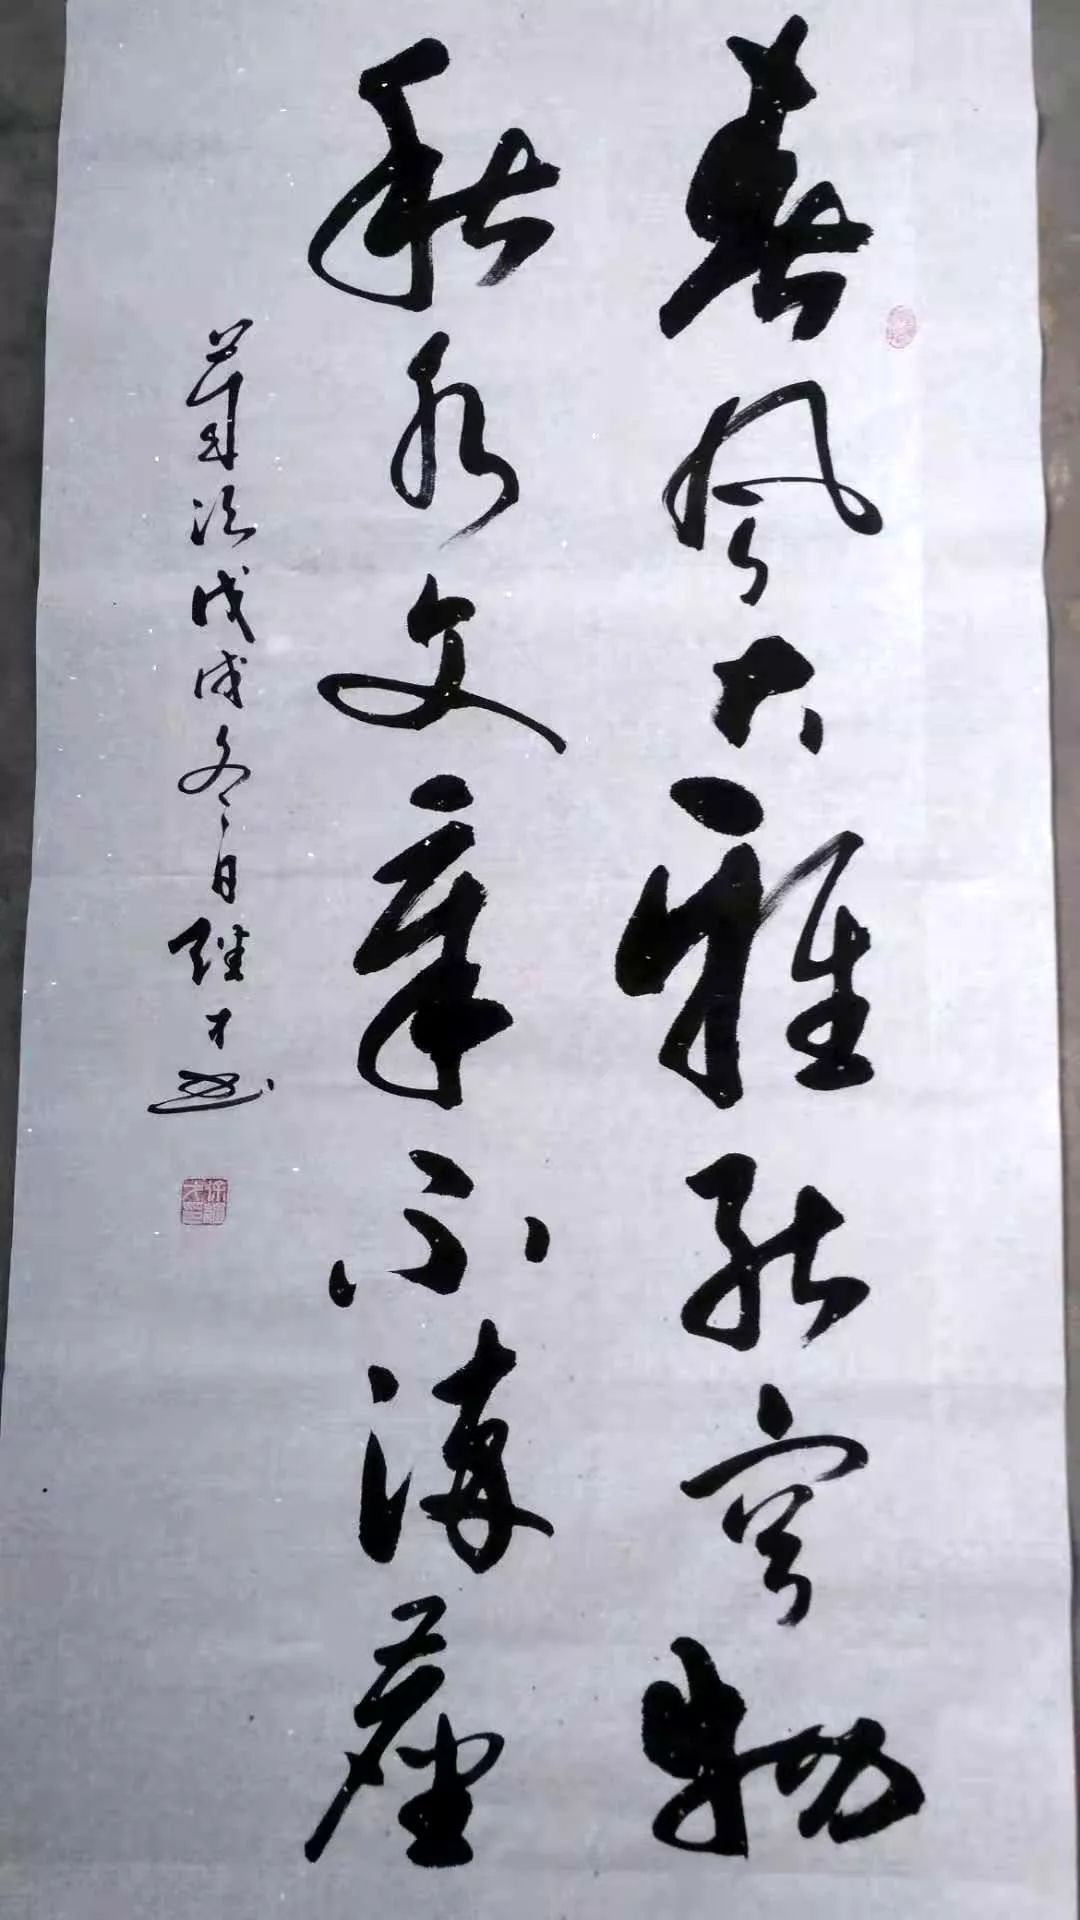 春风大雅能容物
秋水文章不染尘
岁次戊戌冬月继才书